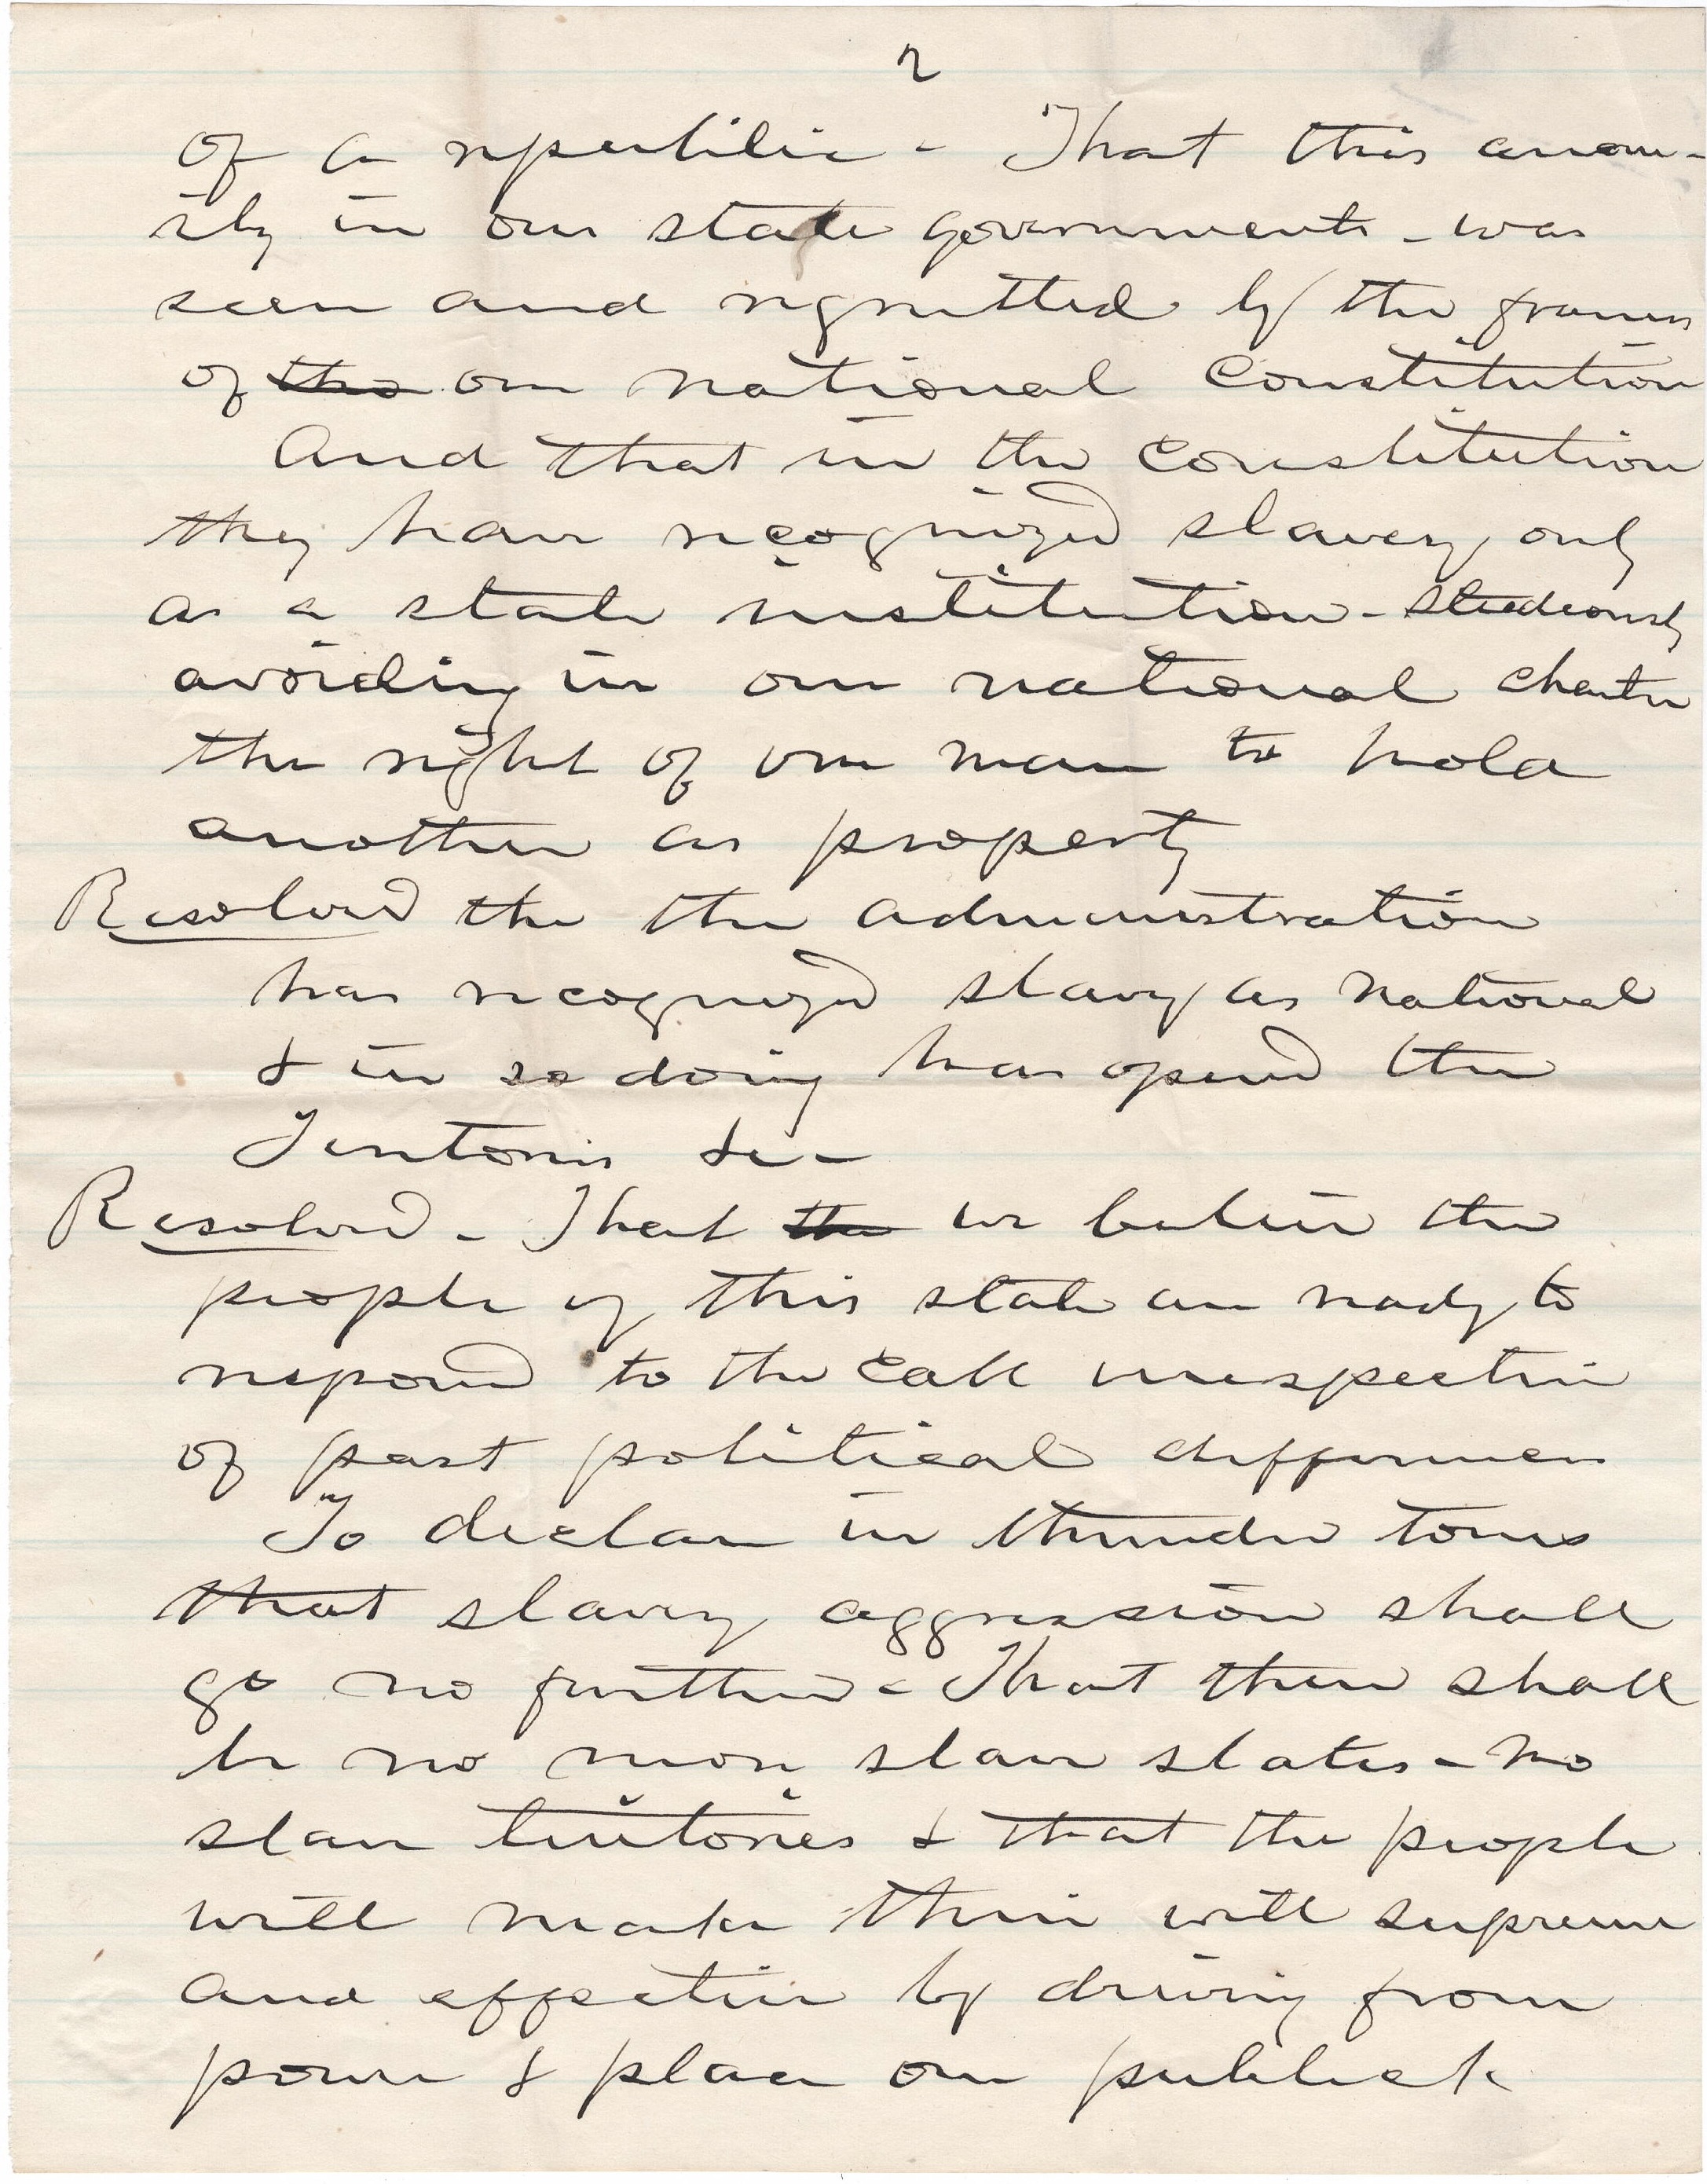 2
of a republic - That this anom-
ily in our state governments - was
seen and regretted by the framers
of the our national Constitution
And that in the Constitution
they have recognized slavery only
as a state institution - Studiously
avoiding in our national charter
the right of one man to hold
another as property
Resolved the the administration
has recognized slavry as national
& in so doing has opened the
Teritories &c -
Resolved - That the we believe the
people of this state are ready to
respond to the call irrespective
of past political differences
To declare in thunder tones
that slavery aggression shall
go no further - That there shall
be no more slave states - no
slave teritories & that the people
will make their will supreme
and effective by driving from
power & place our publick